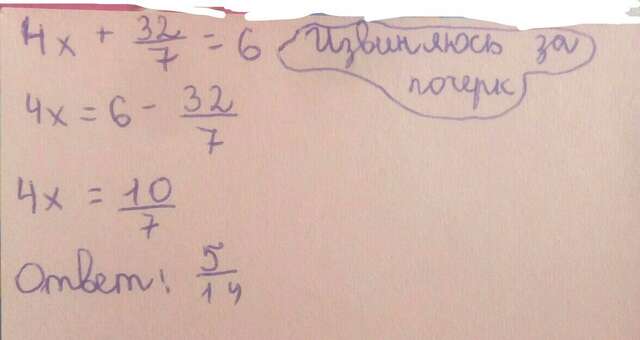 4x + 32/7 = 6
Извиняюсь за
почерк
4x = 6 - 32/7
4x = 10/7
Ответ: 5/14